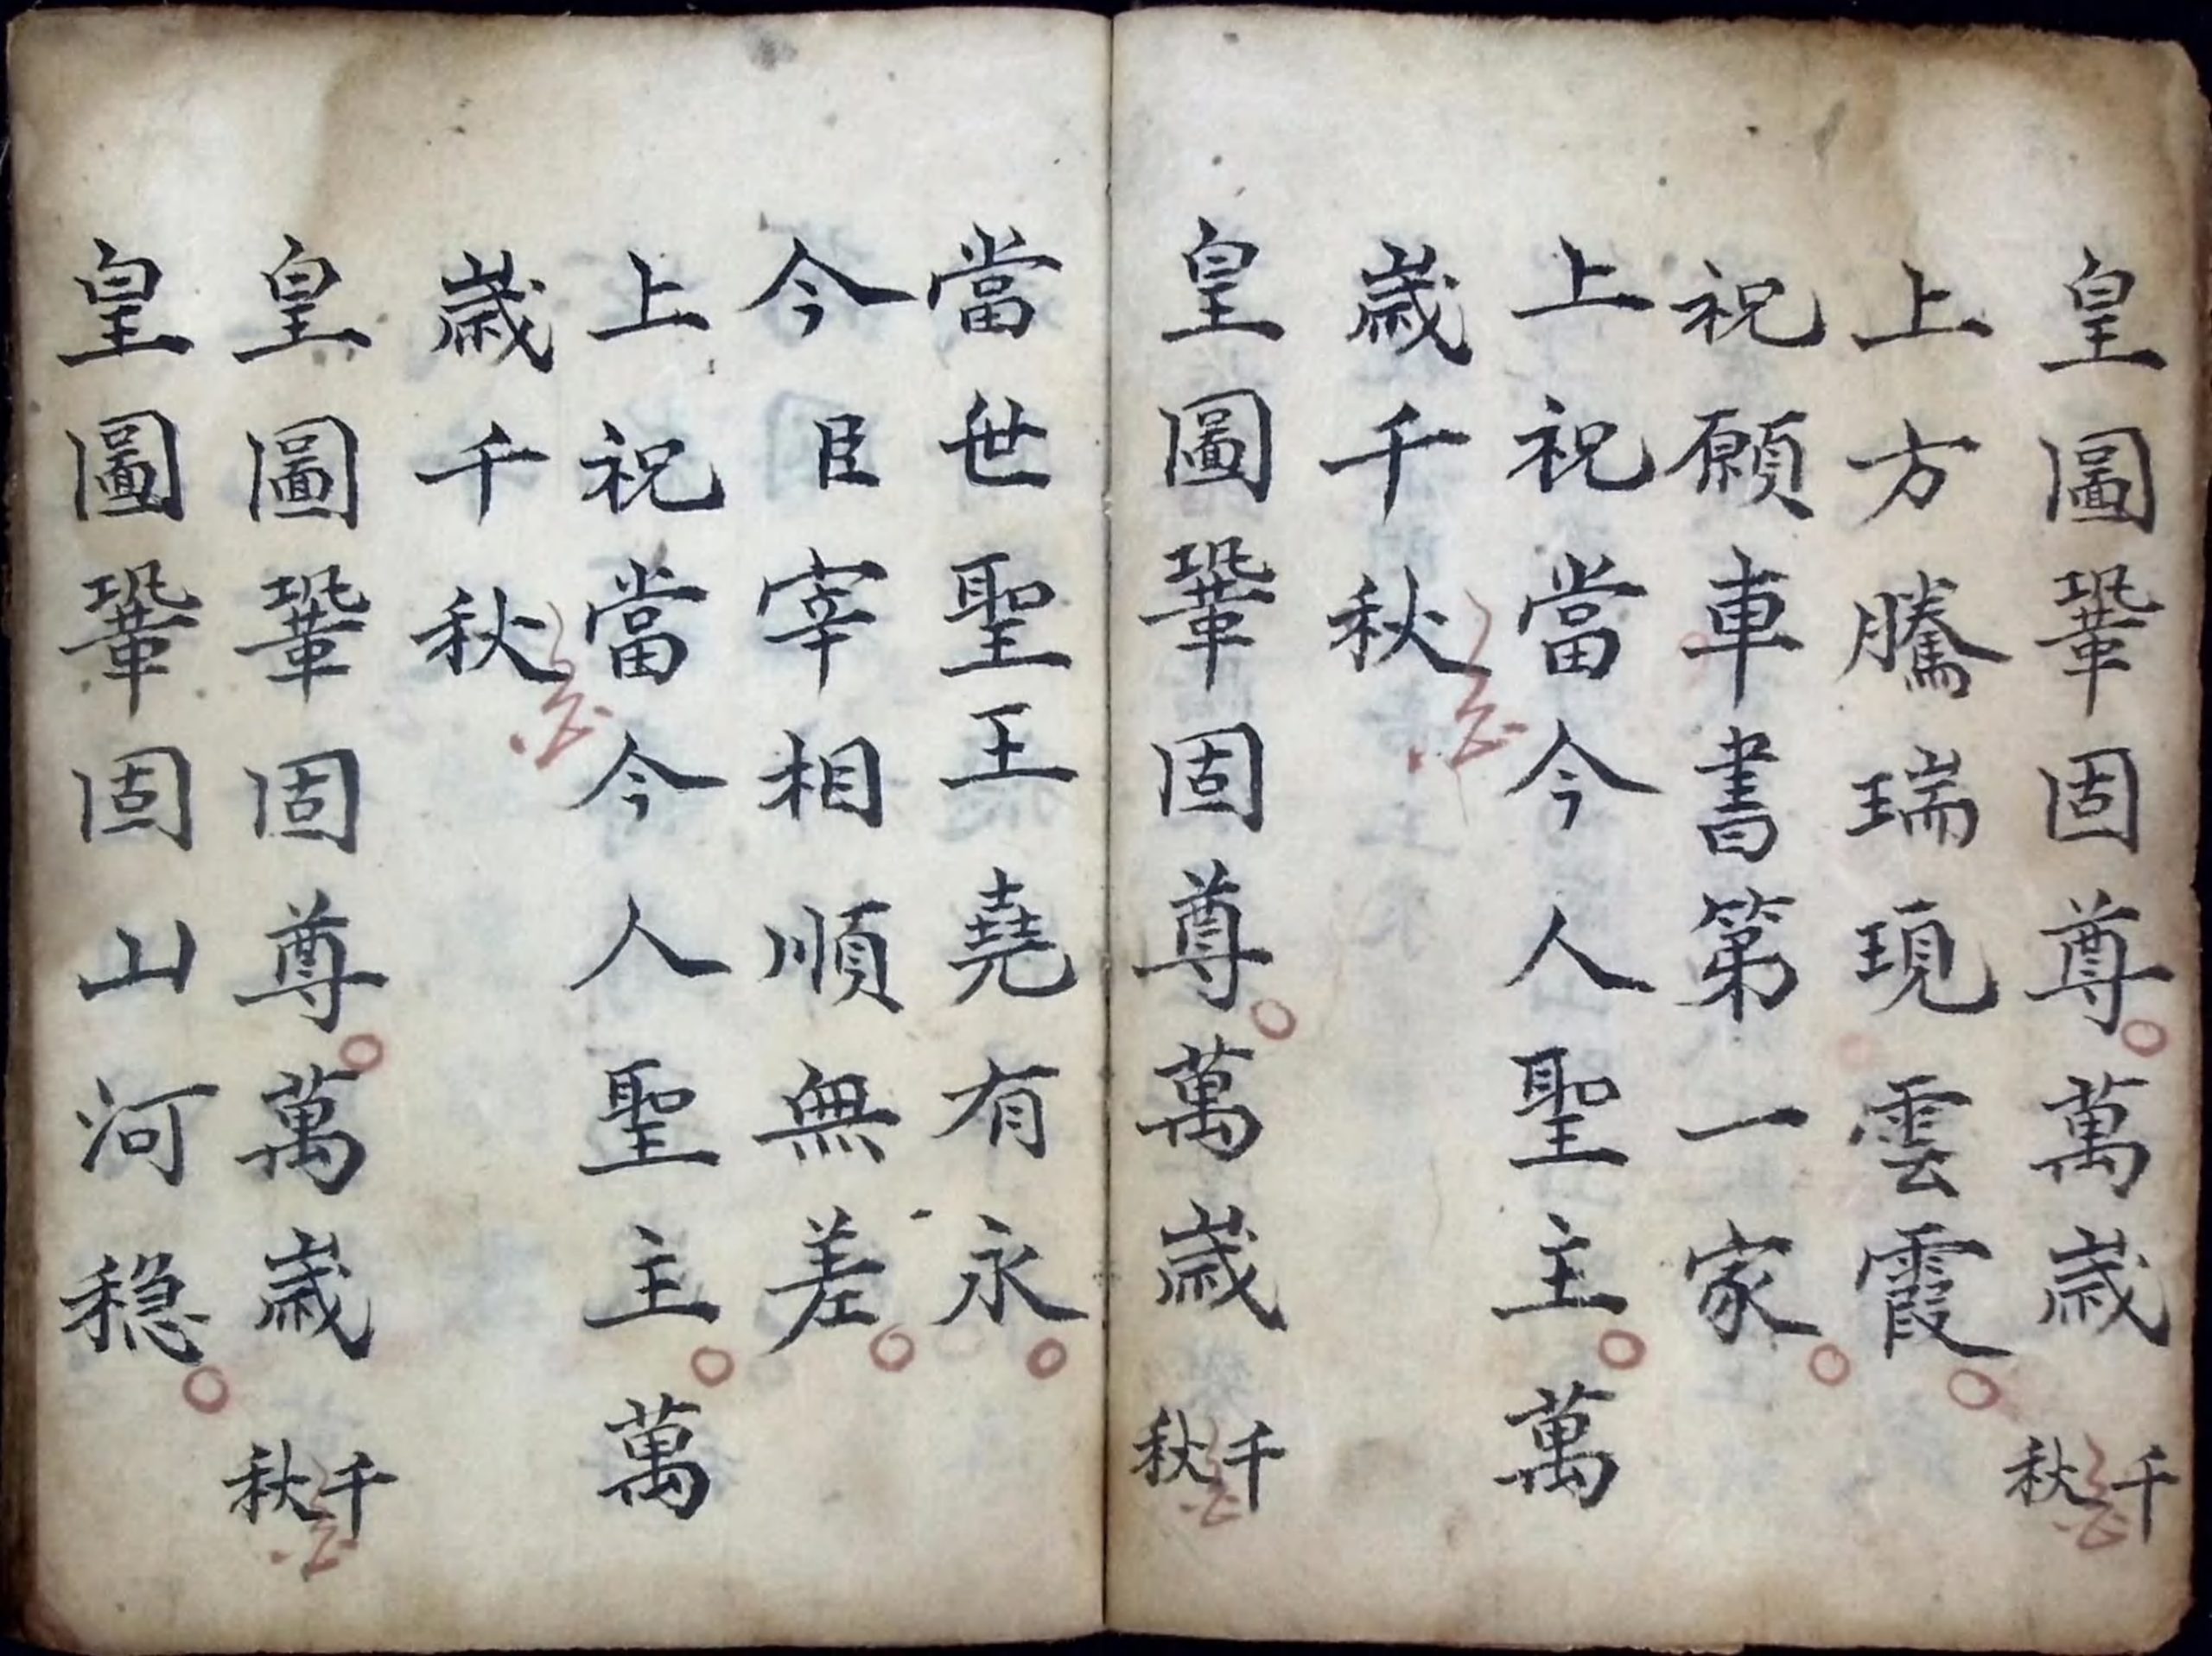 皇圖鞏固尊○萬歲千秋
上方騰瑞現雲霞○
祝願車書第一家○
上祝當今人聖主○萬
歲千秋
皇圖鞏固尊○萬歲千秋
當世聖王堯有永○
今臣宰相順無差○
上祝當今人聖主○萬
歲千秋
皇圖鞏固尊○萬歲千秋
皇圖鞏固山河穩○